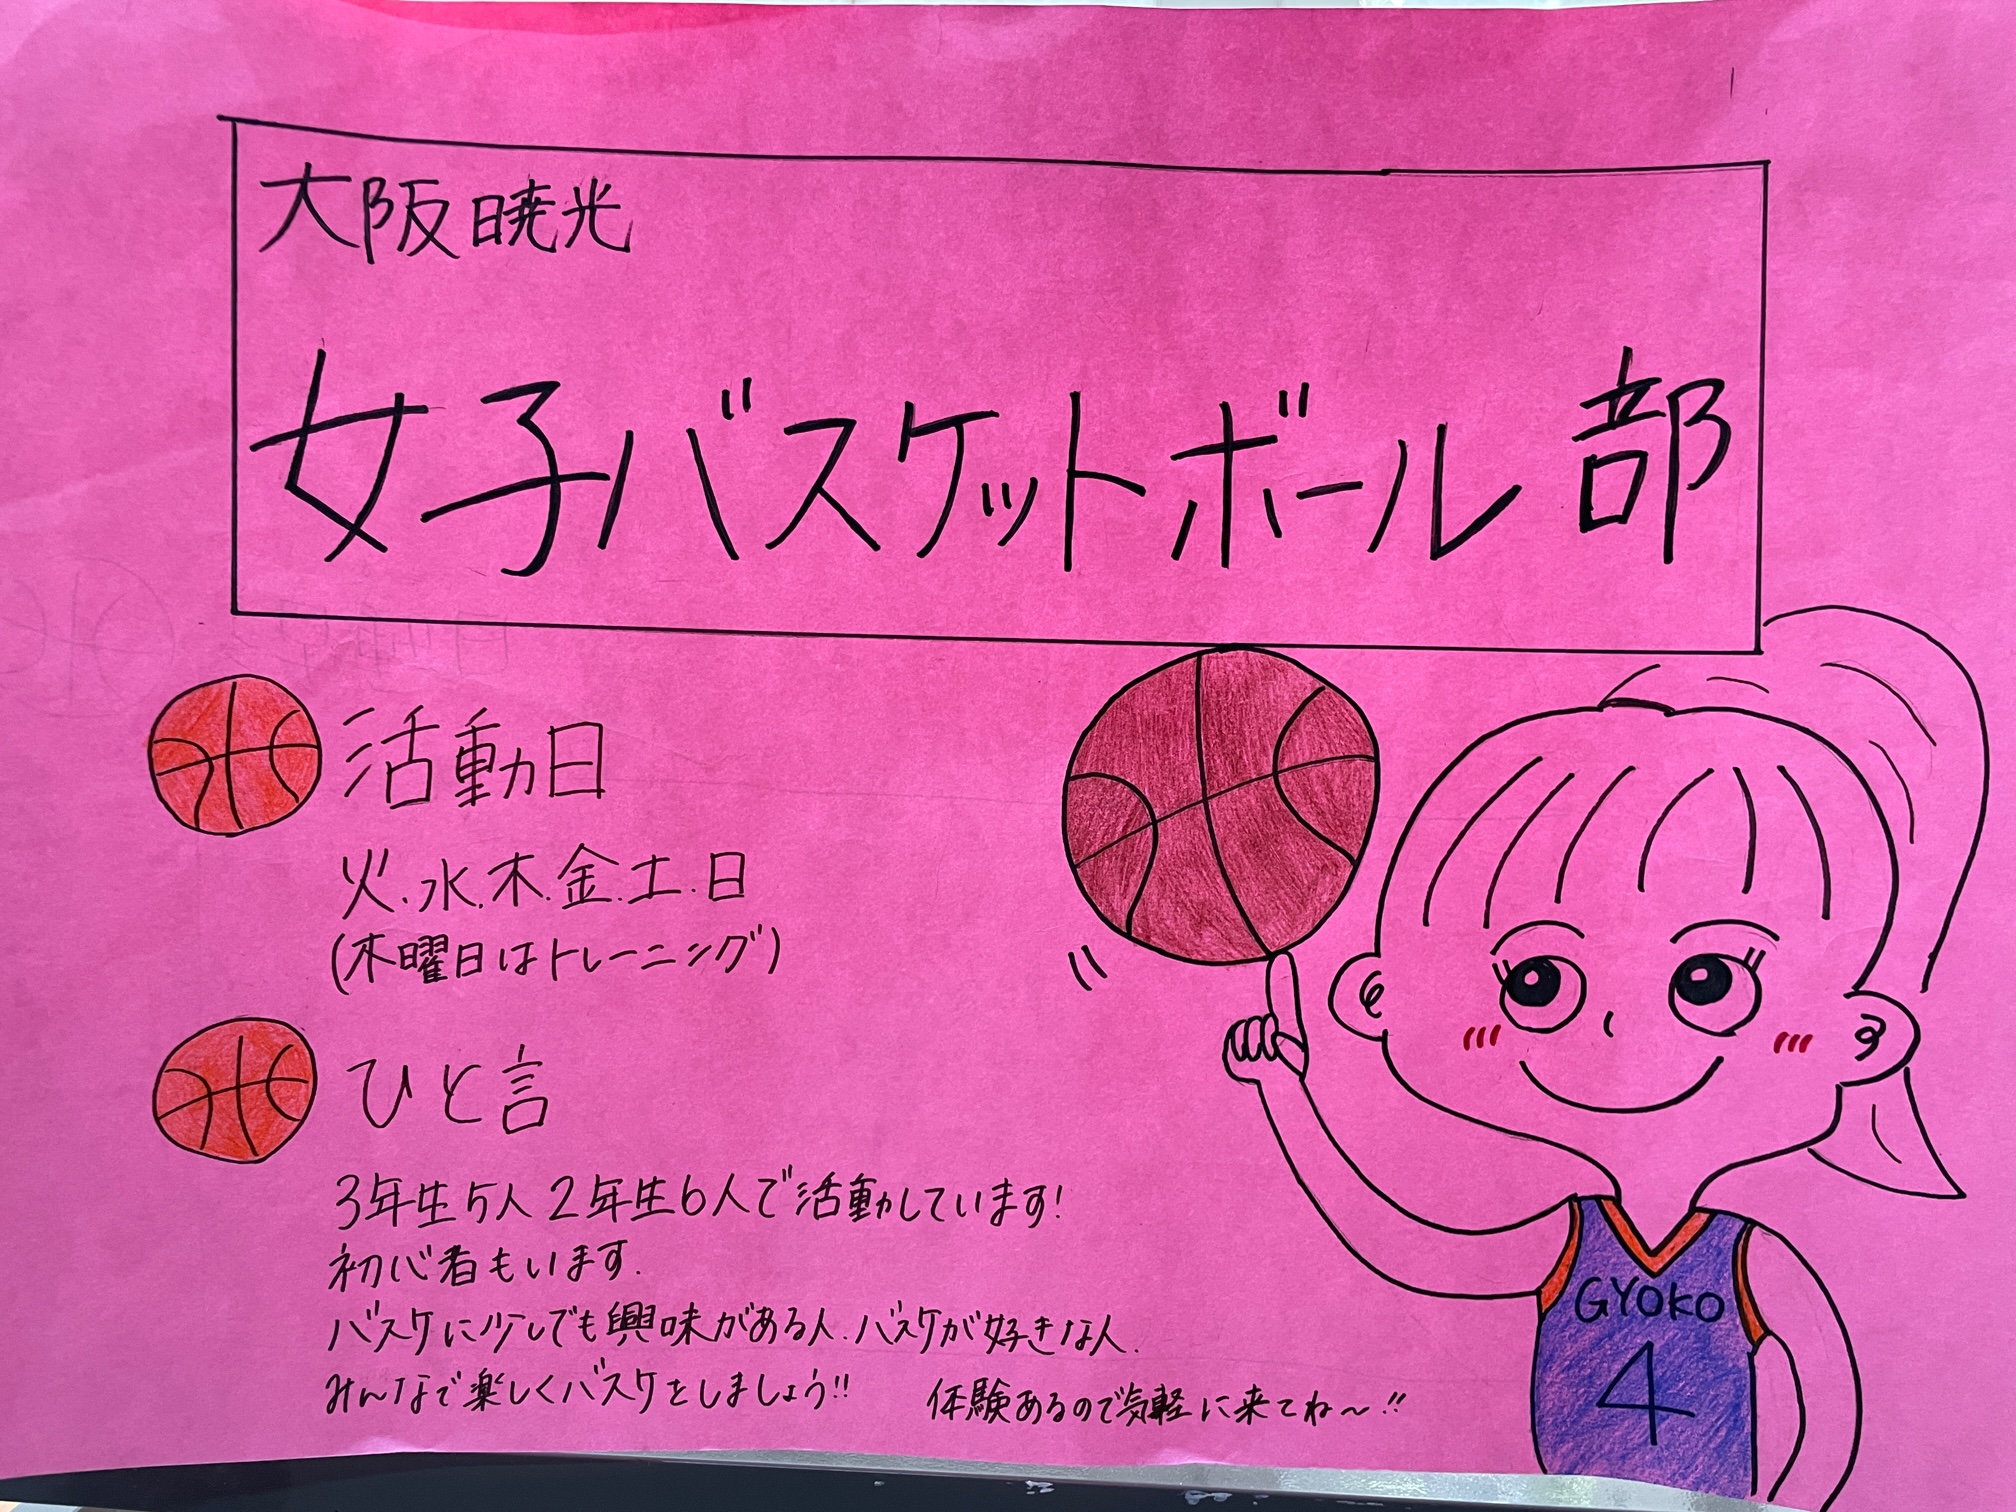 大阪暁光
女子バスケットボール部
活動日
火.水.木.金.土.日
(木曜日はトレーニング)
ひと言
3年生5人2年生6人で活動しています!
初心者もいます.
バスケに少しでも興味がある人.バスケが好きな人.
みんなで楽しくバスケをしましょう!!
体験あるので気軽に来てね〜!!
GYOKO
4